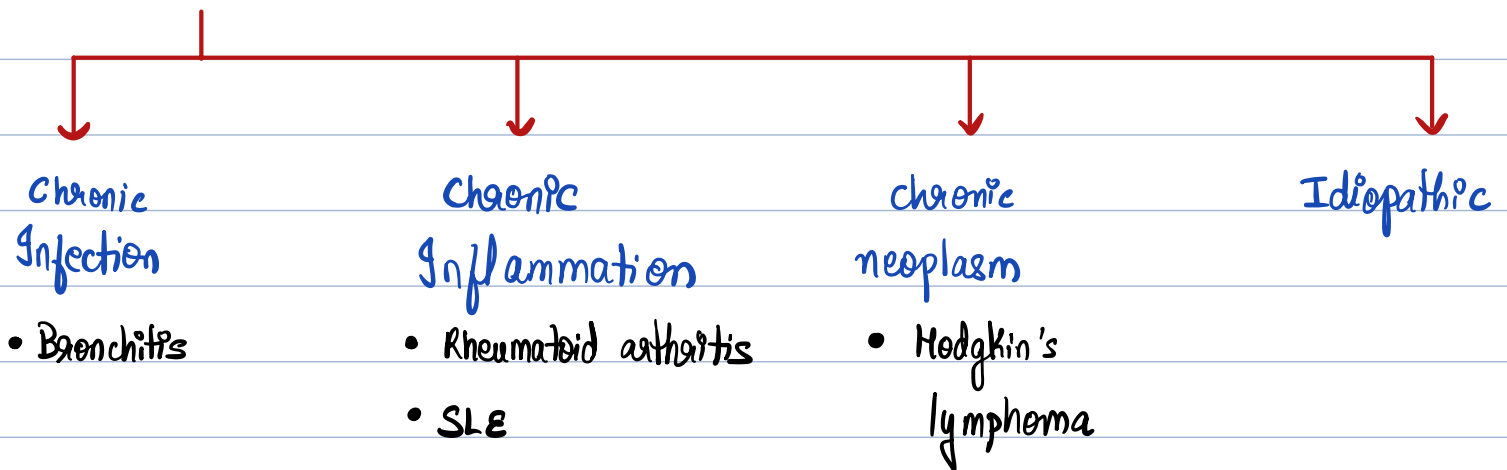 Chronic
Infection
• Bronchitis
Chronic
Inflammation
• Rheumatoid arthritis
• SLE
chronic
neoplasm
• Hodgkin's
lymphoma
Idiopathic